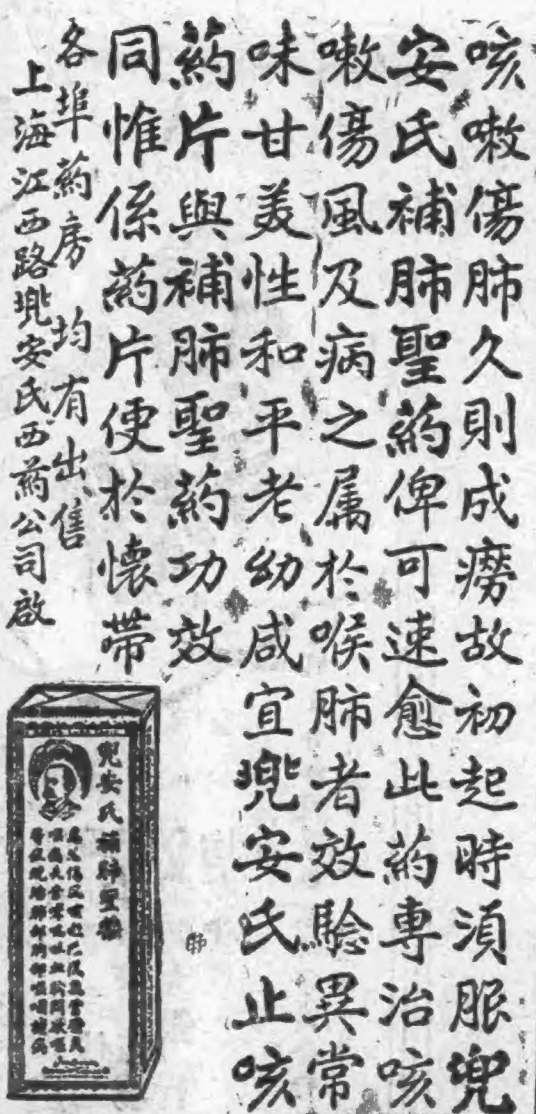 咳嗽傷肺久則成癆故初起時須服兜
安氏補肺聖葯俾可速愈此葯專治咳
嗽傷風及病之属於喉肺者效驗異常
味甘美性和平老幼咸宜兜安氏止咳
葯片與補肺聖葯功效
同惟係葯片便於懷帶
各埠葯房均有出售
上海江西路兜安氏西葯公司啟
兜安氏補肺聖葯